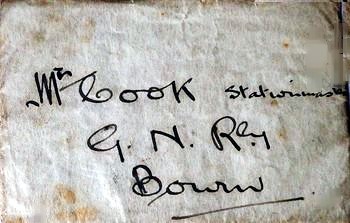 Mr Cook Stationmaster
G. N. Rly
Bourn